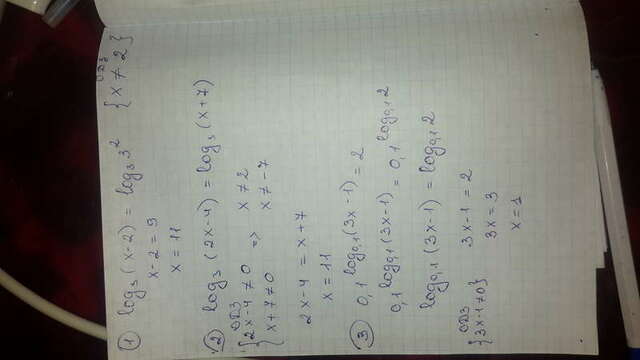 1 log₃(x-2) = log₃3² ОДЗ {x ≠ 2}
x-2 = 9
x = 11
2 log₃(2x-4) = log₃(x+7)
ОДЗ
{2x-4 ≠ 0 => x ≠ 2
x+7 ≠ 0 x ≠ -7
2x-4 = x+7
x = 11
3 0,1^log₀,₁(3x-1) = 2
0,1^log₀,₁(3x-1) = 0,1^log₀,₁2
log₀,₁(3x-1) = log₀,₁2
ОДЗ
{3x-1 ≠ 0} 3x-1 = 2
3x = 3
x = 1